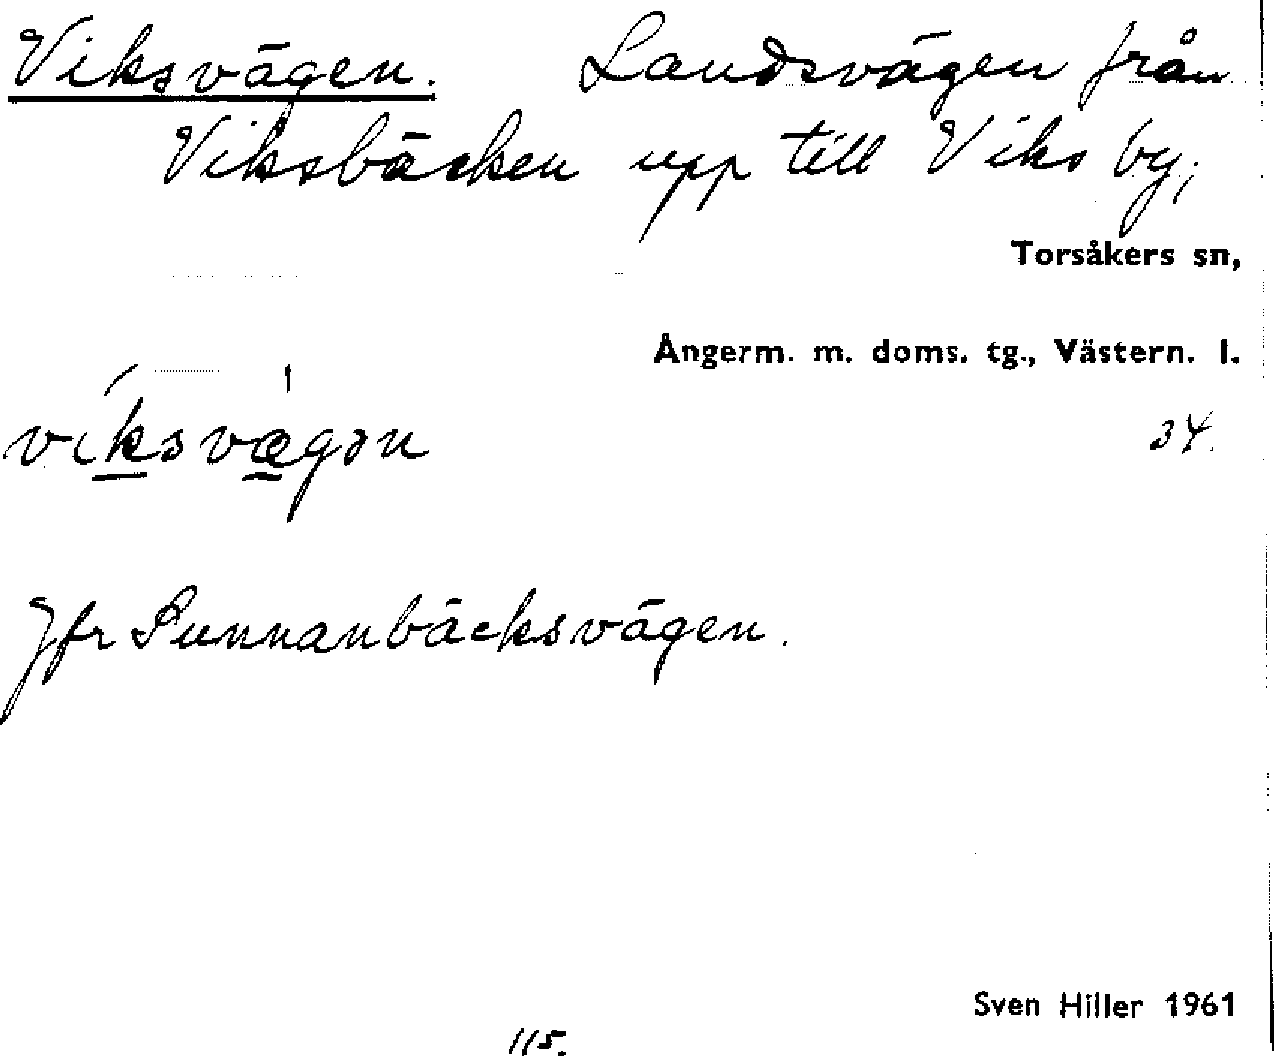 Viksvägen. Landsvägen från
Viksbäcken upp till Viks by;
Torsåkers sn,
Ångerm. m. doms. tg., Västern. l.
viksvægən
34.
Jfr Sunnanbäcksvägen.
Sven Hiller 1961
115.